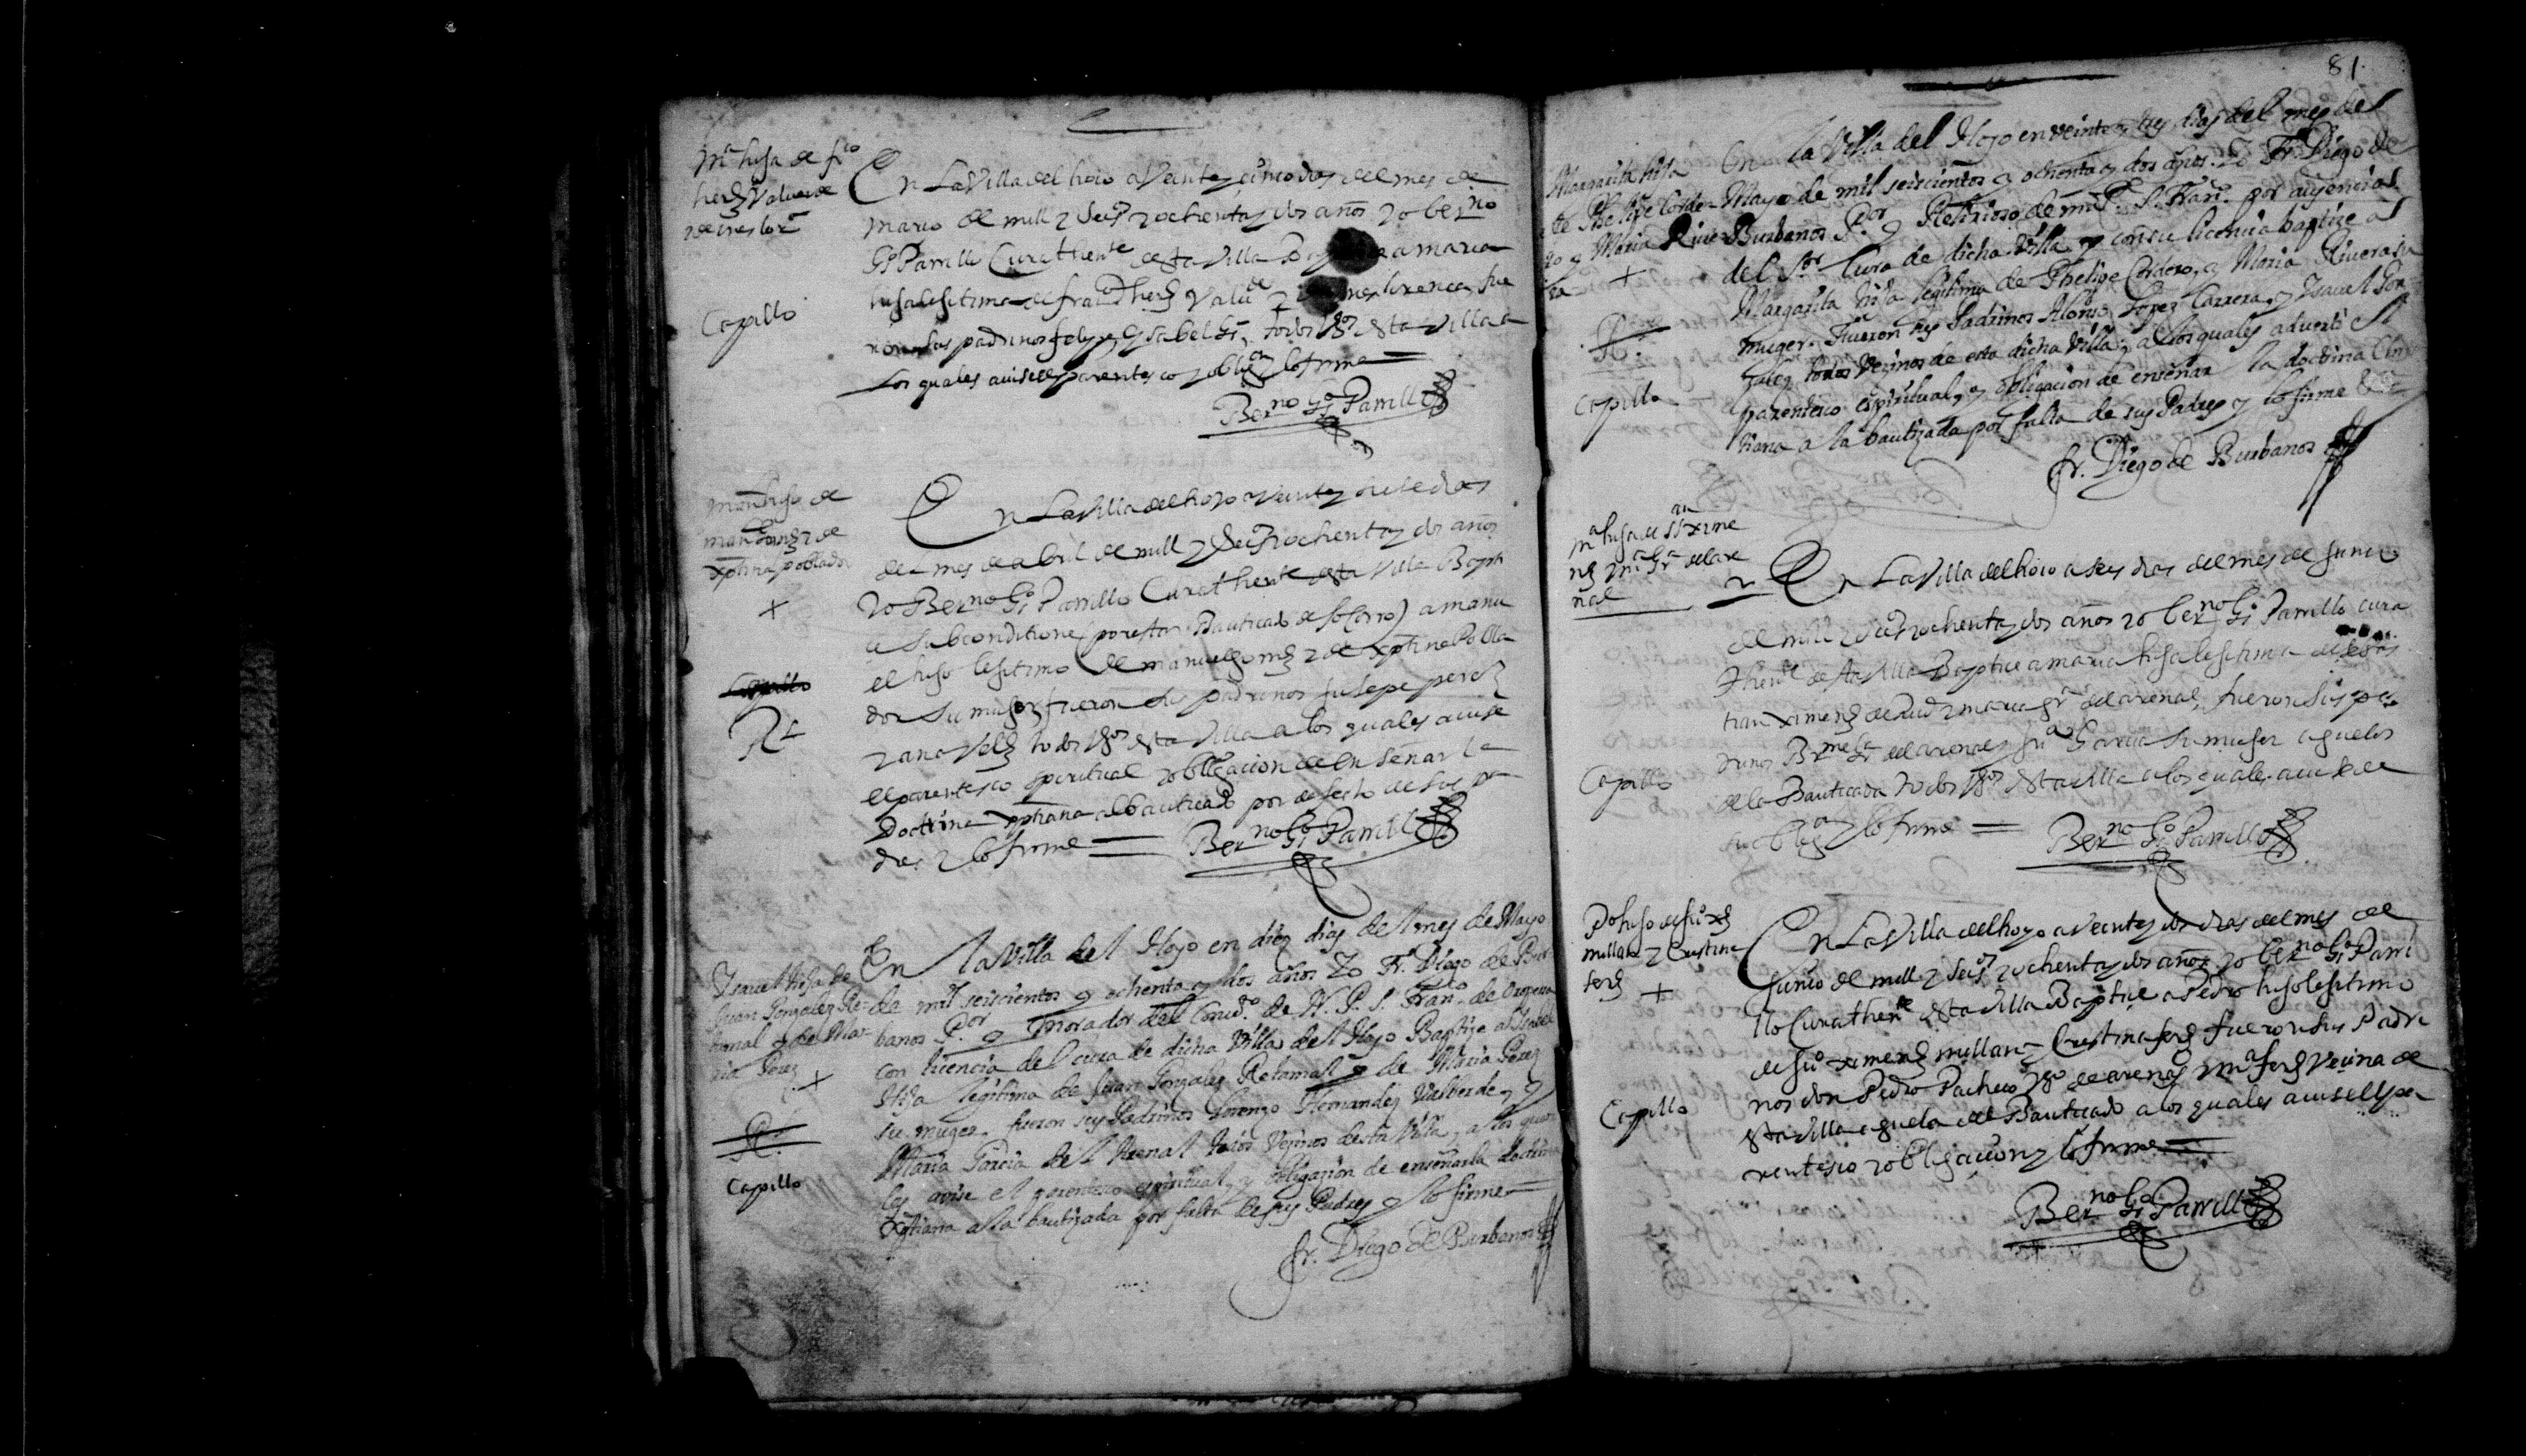 Mª hija de fco
herz Valverde
y de ynes lorª
Capillo
En La Villa del hoio a Veinte y cinco dias del mes de
março de mill y seisº y ochenta y dos años yo berno
Gº Parrillo Cura theniente desta Villa Bap a maria
hija lesitima de franco herz Valde y ynes lorença fue
ron sus padrinos felipe y ysabel Gª, todos Vºs desta Villa a
los quales avise el parentesco y obligon y lo firme
Berno Gº Parrillo
Manl hijo de
manl gomz y de
xptina poblador
+
Capillo
Rl
En La Villa del hoyo a Veinte y siete dias
del mes de abril de mill y seisº y ochenta y dos años
Yo Berno Gº Parrillo Cura theniente desta Villa Bapti
çe Subconditione (por estar Bauticado de socorro) a manu
el hijo lesitimo de manuel gomz y de xptina Pobla
dor su muger fueron sus padrinos Jusepe perez
y ana Velz todos Vºs desta Villa a los quales avise
el parentesco spiritual y obligacion de ensenar la
Doctrina xptiana al bauticado por defecto de sus pa
dres y lo firme
Berno Gº Parrillo
Ysavel hija de
Juan Gonzalez Re-
tamal y de Ma-
ria Perez
+
Rl
Capillo
En la Villa del Hoyo en diez dias del mes de Mayo
de mil seiscientos y ochenta y dos años Yo Fr. Diego de Bur
banos P.or y Morador del Convº. de N. P. S. Franº. de Oropesa
con licencia del cura de dicha Villa del Hoyo Baptize a Isabel
Hija legitima de Juan Gonzalez Retamal y de Maria Perez
su muger. fueron sus Padrinos Lorenzo Hernandez Valverde, y
Maria Garcia del Arenal todos Vezinos desta Villa, a los qua
les avise el parentesco espiritual, y obligazion de enseñarla doctrina
Xptiana a la bautizada por falta de sus Padres y lo firme
fr. Diego de Burbanos
81
Margarita hija
de Phelipe Corde-
ro y Maria Rive-
ra
+
Rl
Capillo
En la Villa del Hoyo en veinte y tres dias del mes de
Mayo de mil seiscientos y ochenta y dos años. Yo Fr. Diego de
Burbanos P.or y Relixioso de mi P. S. Franº. por ausencia
del S.or Cura de dicha Villa, y con su licencia baptize a
Margarita hija legitima de Phelipe Cordero, y Maria Rivera su
muger. Fueron sus Padrinos Alonso Lopez Carrera, y Ysavel Gon
zalez todos Vezinos de esta dicha Villa, a los quales adverti el
parentesco espiritual, y obligacion de enseñar la doctrina Chris
tiana a la bautizada por falta de sus Padres y lo firme
fr. Diego de Burbanos
Mª hija de ssan xime
nz y mª Gª del are
nal
Capillo
En La Villa del hoio a seis dias del mes de junio
de mill y seisº y ochenta y dos años yo berno Gº Parrillo cura
thente desta Villa Baptice a maria hija lesitima de sebas
tian ximenz y maria gª del arenal, fueron sus pa
drinos Bme Gª del arenal y Juª Garcia su muger aguelos
de la Bauticada todos Vºs desta Villa a los quales avise de
su obligon y lo firme
Berno Gº Parrillo
Pº hijo de Juº xz
millan y Cristina
ferz
+
Capillo
En La Villa del hoyo a Veinte y dos dias del mes de
Junio de mill y seisº y ochenta y dos años yo berno Gº Parri
llo Cura thente desta Villa Baptice a Pedro hijo lesitimo
de Juº ximenz millan y Cristina ferz fueron sus Padri
nos don Pedro Pacheco Vº de arenas y mª ferz Vecina de
esta Villa aguela del Bauticado a los quales avise el pa
rentesco y obligacion y lo firme
Berno Gº Parrillo